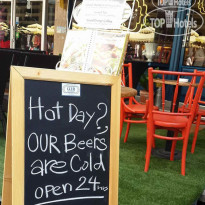 TOP
TopHotels
Hot Day?
OUR Beers
are Cold
open 24 hrs